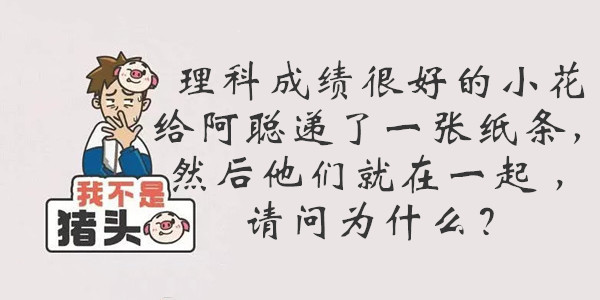 理科成绩很好的小花
给阿聪递了一张纸条，
然后他们就在一起，
请问为什么？
我不是
猪头